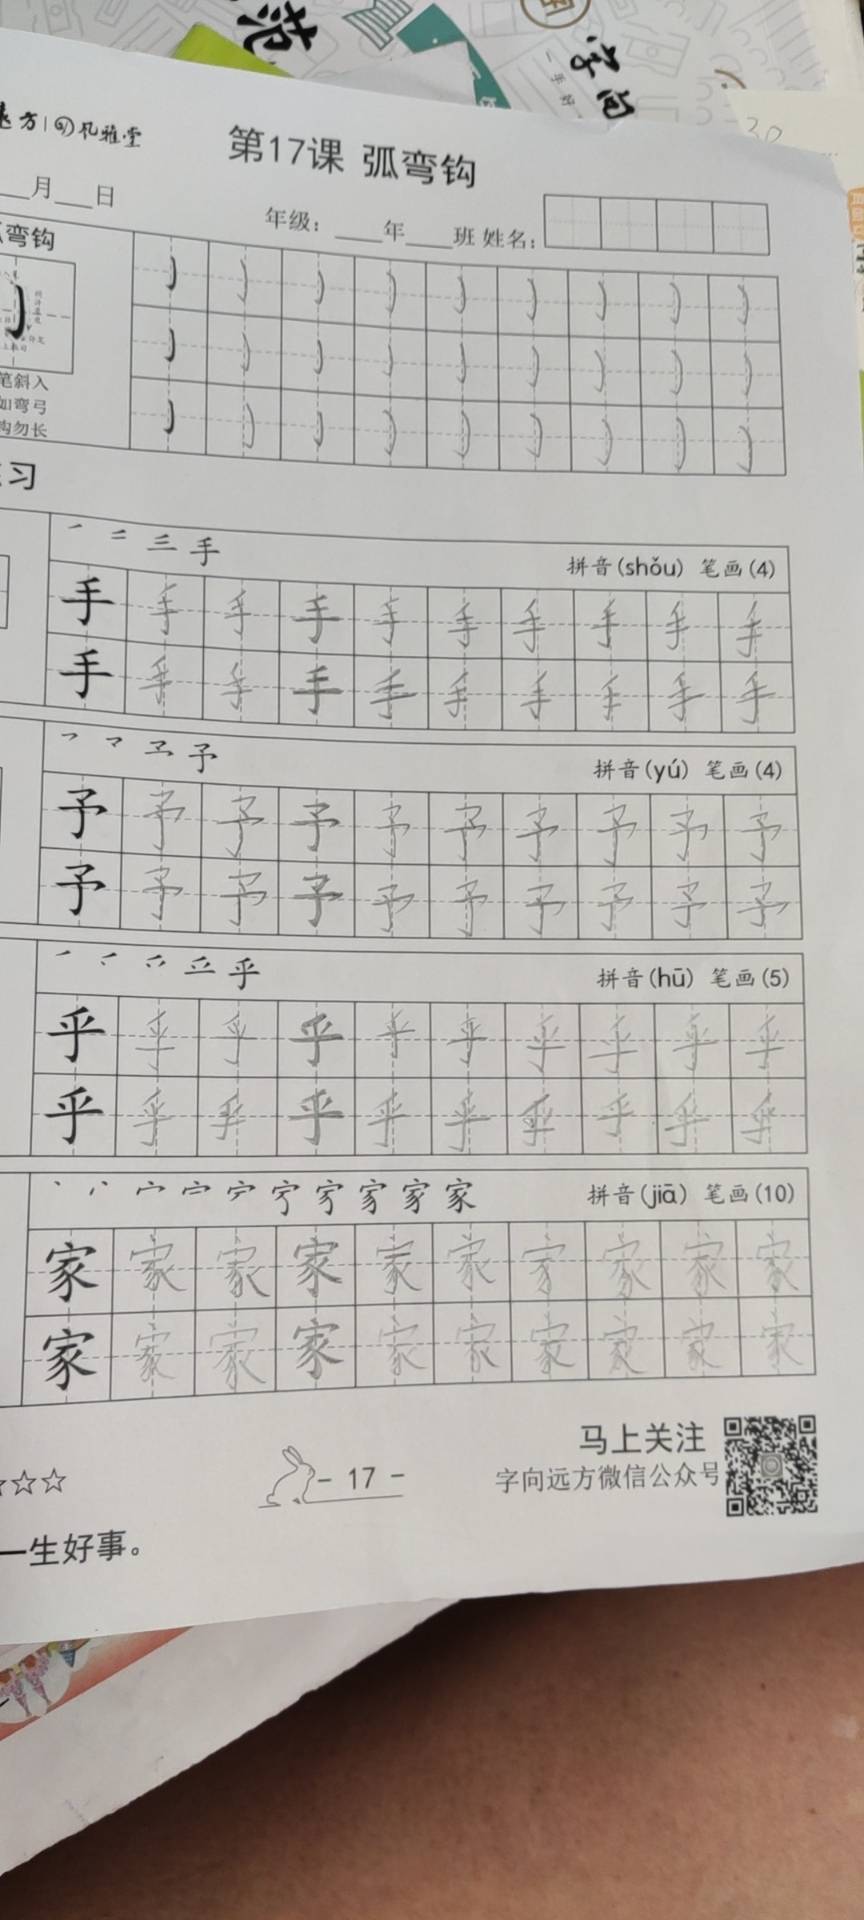 范
字向
一手好
30
远方 风雅堂
第17课 弧弯钩
月 日
年级: 年 班 姓名:
弯钩
笔斜入
如弯弓
钩勿长
习
手 拼音(shǒu) 笔画(4)
手 手 手 手 手 手 手 手 手 手
手 手 手 手 手 手 手 手 手 手
予 拼音(yú) 笔画(4)
予 予 予 予 予 予 予 予 予 予
予 予 予 予 予 予 予 予 予 予
乎 拼音(hū) 笔画(5)
乎 乎 乎 乎 乎 乎 乎 乎 乎 乎
乎 乎 乎 乎 乎 乎 乎 乎 乎 乎
家 拼音(jiā) 笔画(10)
家 家 家 家 家 家 家 家 家 家
家 家 家 家 家 家 家 家 家 家
☆☆☆
- 17 -
马上关注
字向远方微信公众号
一生好事。